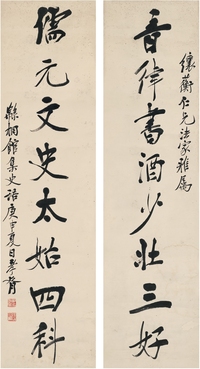 纕蘅仁兄法家雅属
音律書酒少壮三好
儒元文史太始四科
緜桐館集史語庚申夏日孝胥